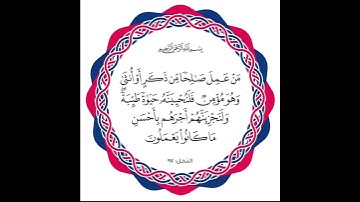 بِسْمِ اللَّهِ الرَّحْمَنِ الرَّحِيمِ
مَنْ عَمِلَ صَـٰلِحًا مِّن ذَكَرٍ أَوْ أُنثَىٰ
وَهُوَ مُؤْمِنٌ فَلَنُحْيِيَنَّهُۥ حَيَوٰةً طَيِّبَةً ۖ
وَلَنَجْزِيَنَّهُمْ أَجْرَهُم بِأَحْسَنِ
مَا كَانُوا۟ يَعْمَلُونَ
النحل: ٩٧